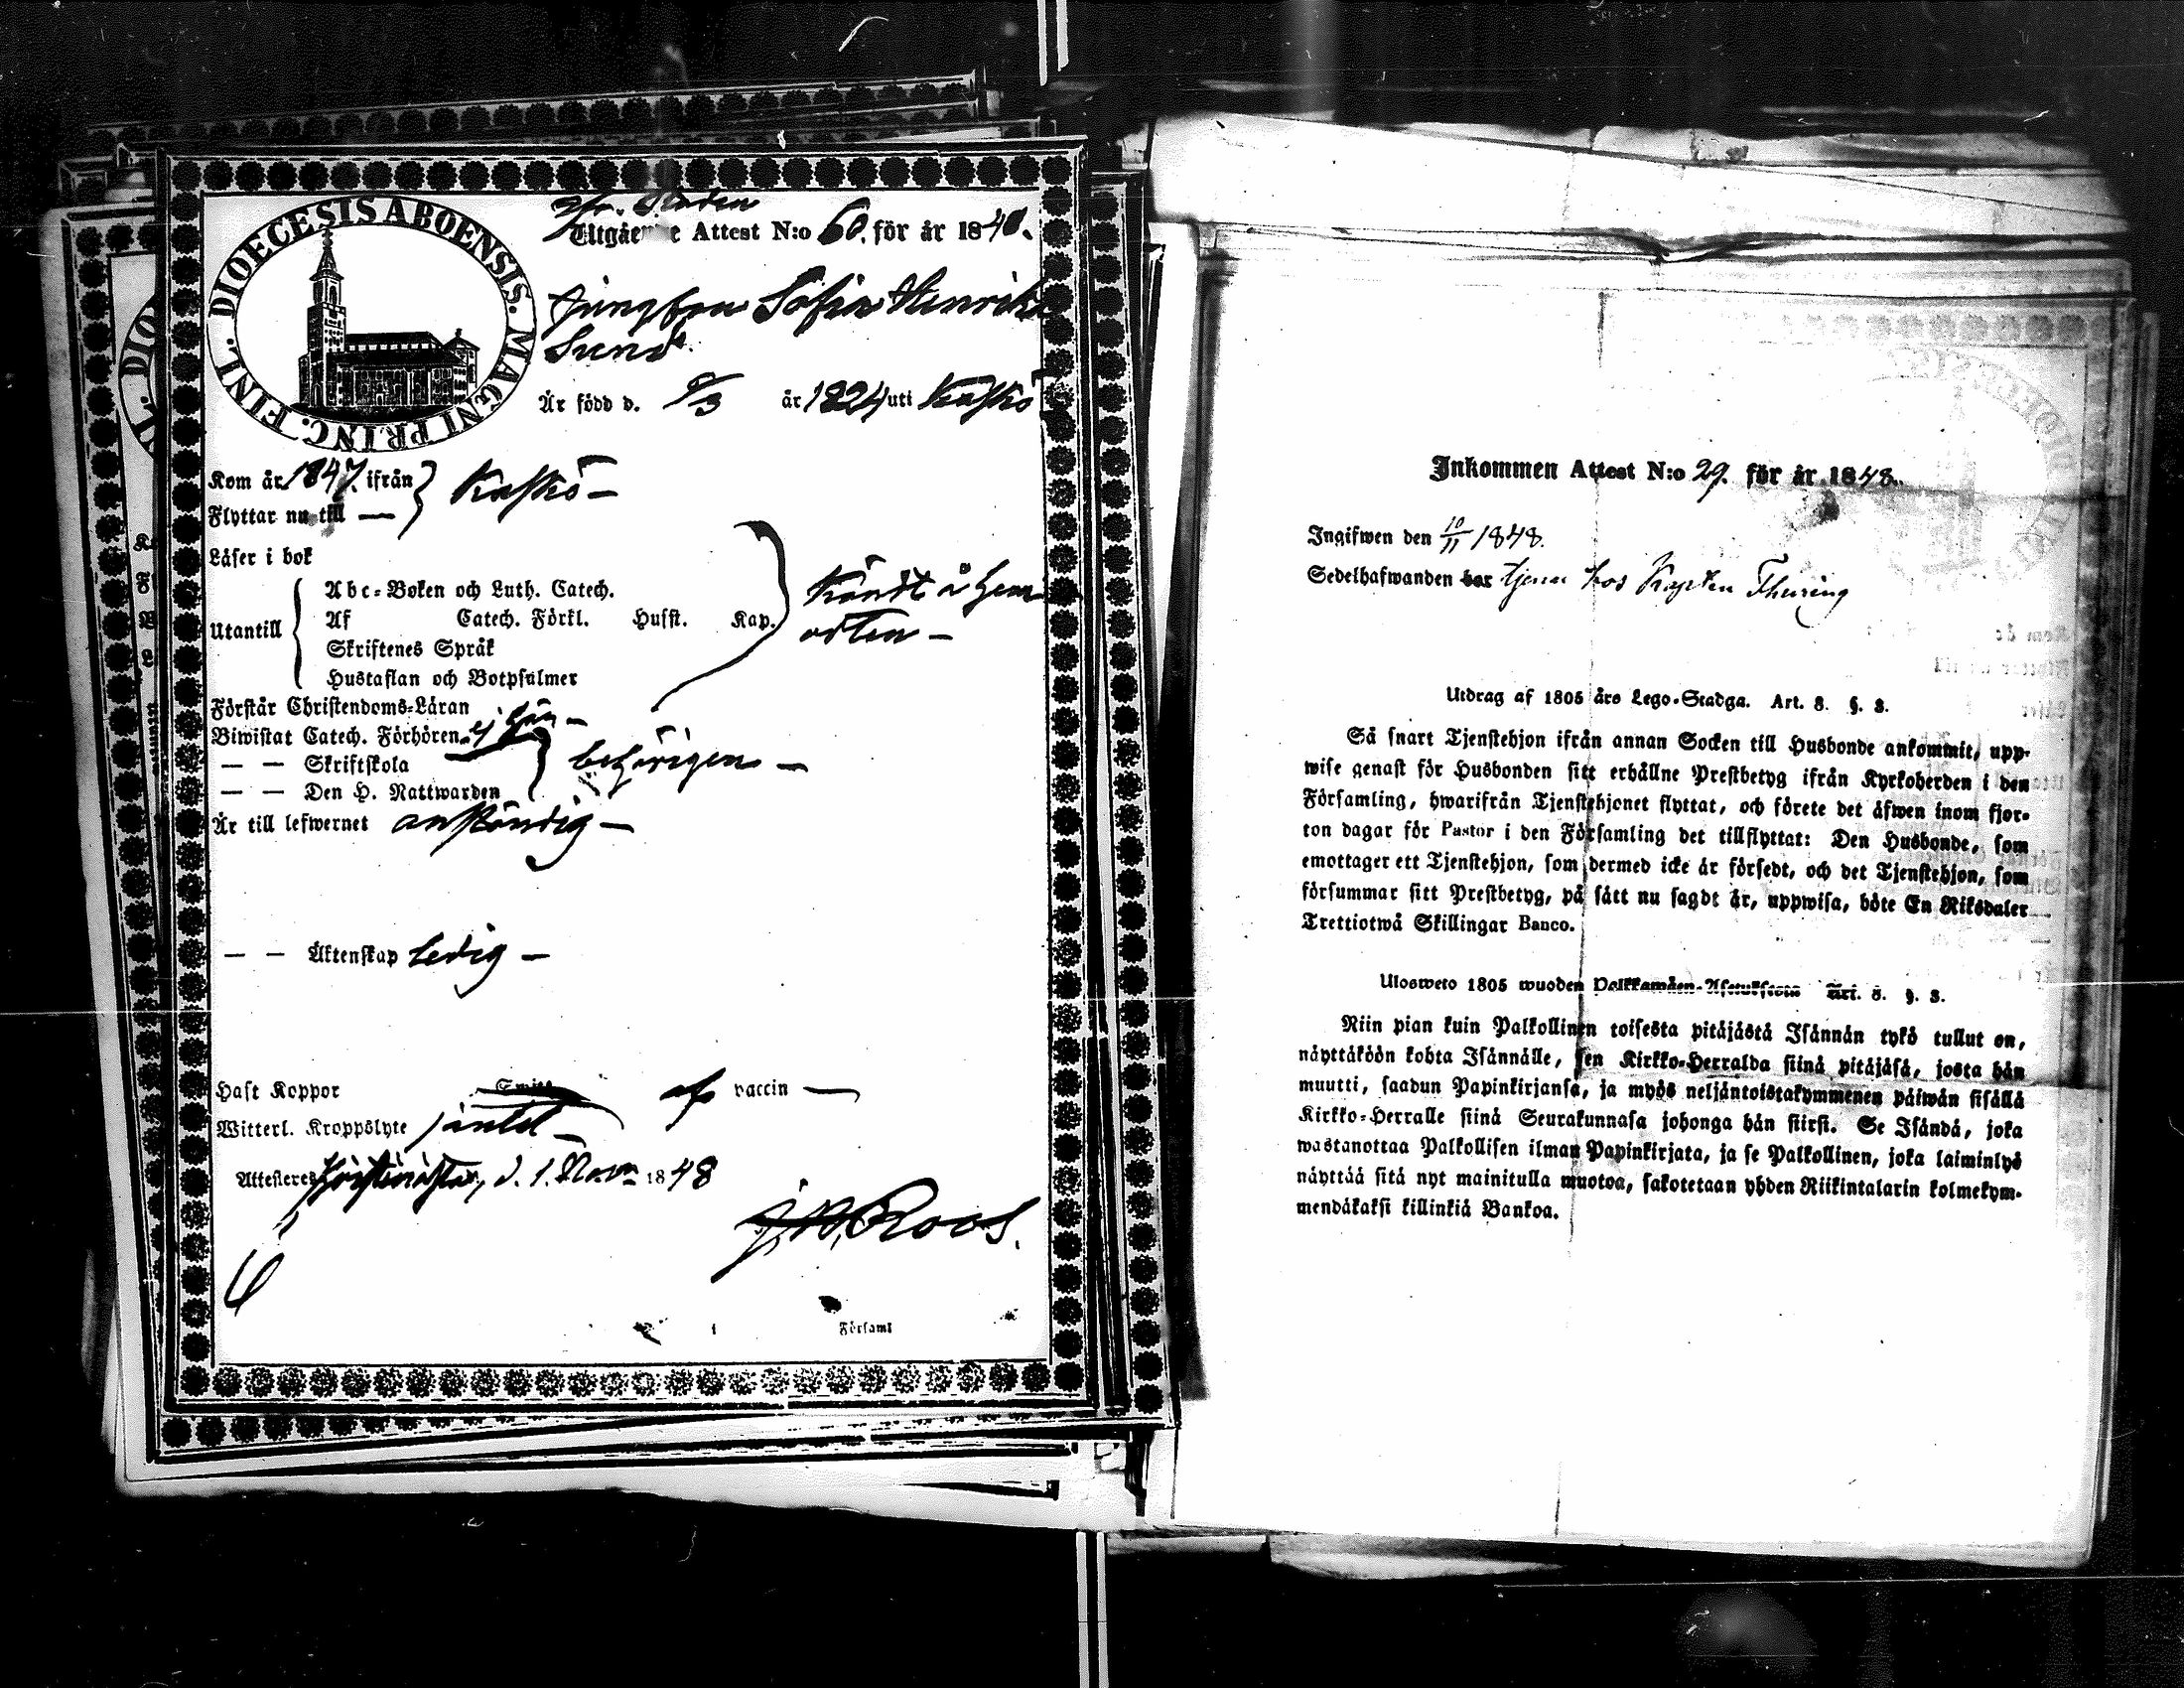 DIOECESIS ABOENSIS. MAGNI PRINC. FINL.
fr. Staden
Utgående Attest N:o 60. för år 1848.
Jungfrun Sofia Henrika
Sund
Är född d. 9/3 år 1824 uti Kaskö
Kom år 1847. ifrån } Kaskö —
Flyttar nu till —
Läser i bok
Abc-Boken och Luth. Catech.
Utantill { Af Catech. Förkl. Husst. Kap.
Skriftenes Språk
Hustaflan och Botpsalmer
Kändt å hem
orten —
Förstår Christendoms-Läran
Biwistat Catech. Förhören ej här —
— — Skriftskola } behörigen —
— — Den H. Nattwarden
Är till lefwernet anständig —
— — Äktenskap ledig —
Haft Koppor af vaccin —
Witterl. Kroppslyte intet —
Attesteres Christinestad, d. 1. Nov. 1848
Roos.
i Församl
Inkommen Attest N:o 29. för år 1848.
Ingifwen den 10/11 1848.
Sedelhafwanden bor tjenar hos Kapten Thuring
Utdrag af 1805 års Lego-Stadga. Art. 8. §. 3.
Så snart Tjenstehjon ifrån annan Socken till Husbonde ankommit, upp-
wise genast för Husbonden sitt erhållne Prestbetyg ifrån Kyrkoherden i den
Församling, hwarifrån Tjenstehjonet flyttat, och förete det äfwen inom fjor-
ton dagar för Pastor i den Församling det tillflyttat: Den Husbonde, som
emottager ett Tjenstehjon, som dermed icke är försedt, och det Tjenstehjon, som
försummar sitt Prestbetyg, på sätt nu sagdt är, uppwisa, böte En Riksdaler
Trettiotwå Skillingar Banco.
Ulosweto 1805 wuoden Palkkawäen-Asetuksesta Art. 8. §. 3.
Niin pian kuin Palkollinen toisesta pitäjästä Isännän tykö tullut on,
näyttäköön kohta Isännälle, sen Kirkko-Herralda siinä pitäjäsä, josta hän
muutti, saadun Papinkirjansa, ja myös neljäntoistakymmenen päiwän sisällä
Kirkko-Herralle siinä Seurakunnasa johonga hän siirsi. Se Isändä, joka
wastanottaa Palkollisen ilman Papinkirjata, ja se Palkollinen, joka laiminlyö
näyttää sitä nyt mainitulla muotoa, sakotetaan yhden Riikintalarin kolmekym-
mendäkaksi killinkiä Bankoa.